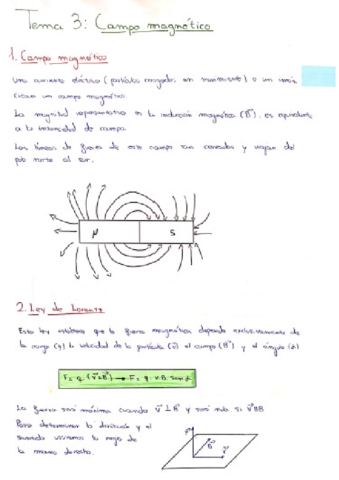 Tema 3: Campo magnético
1. Campo magnético
Una corriente eléctrica (partículas cargadas en movimiento) o un imán
crean un campo magnético.
La magnitud representativa es la inducción magnética (B), es equivalente
a la intensidad de campo.
Las líneas de fuerza de este campo son cerradas y viajan del
polo norte al sur.
N S
2. Ley de Lorentz
Esta ley establece que la fuerza magnética depende exclusivamente de
la carga (q) la velocidad de la partícula (v) el campo (B) y el ángulo (α)
F = q · (v × B) → F = q · v · B · sen α
La fuerza será máxima cuando v ⊥ B y será nula si v B
Para determinar la dirección y el
sentido usaremos la regla de
la mano derecha.
F
B
v